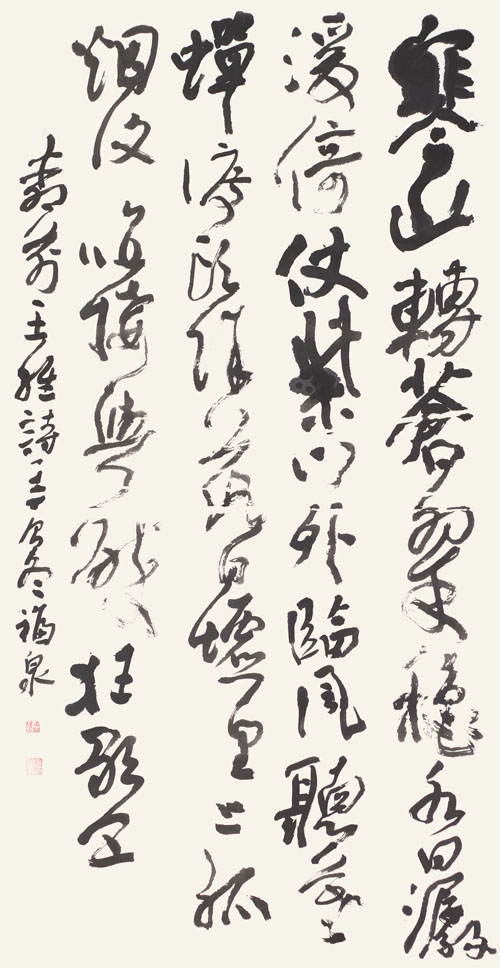 寒山轉蒼翠穐水日潺
湲倚仗柴門外臨風聽暮
蟬渡頭餘落日墟里上孤
烟復值接輿醉狂歌五
柳前王維詩冬福泉